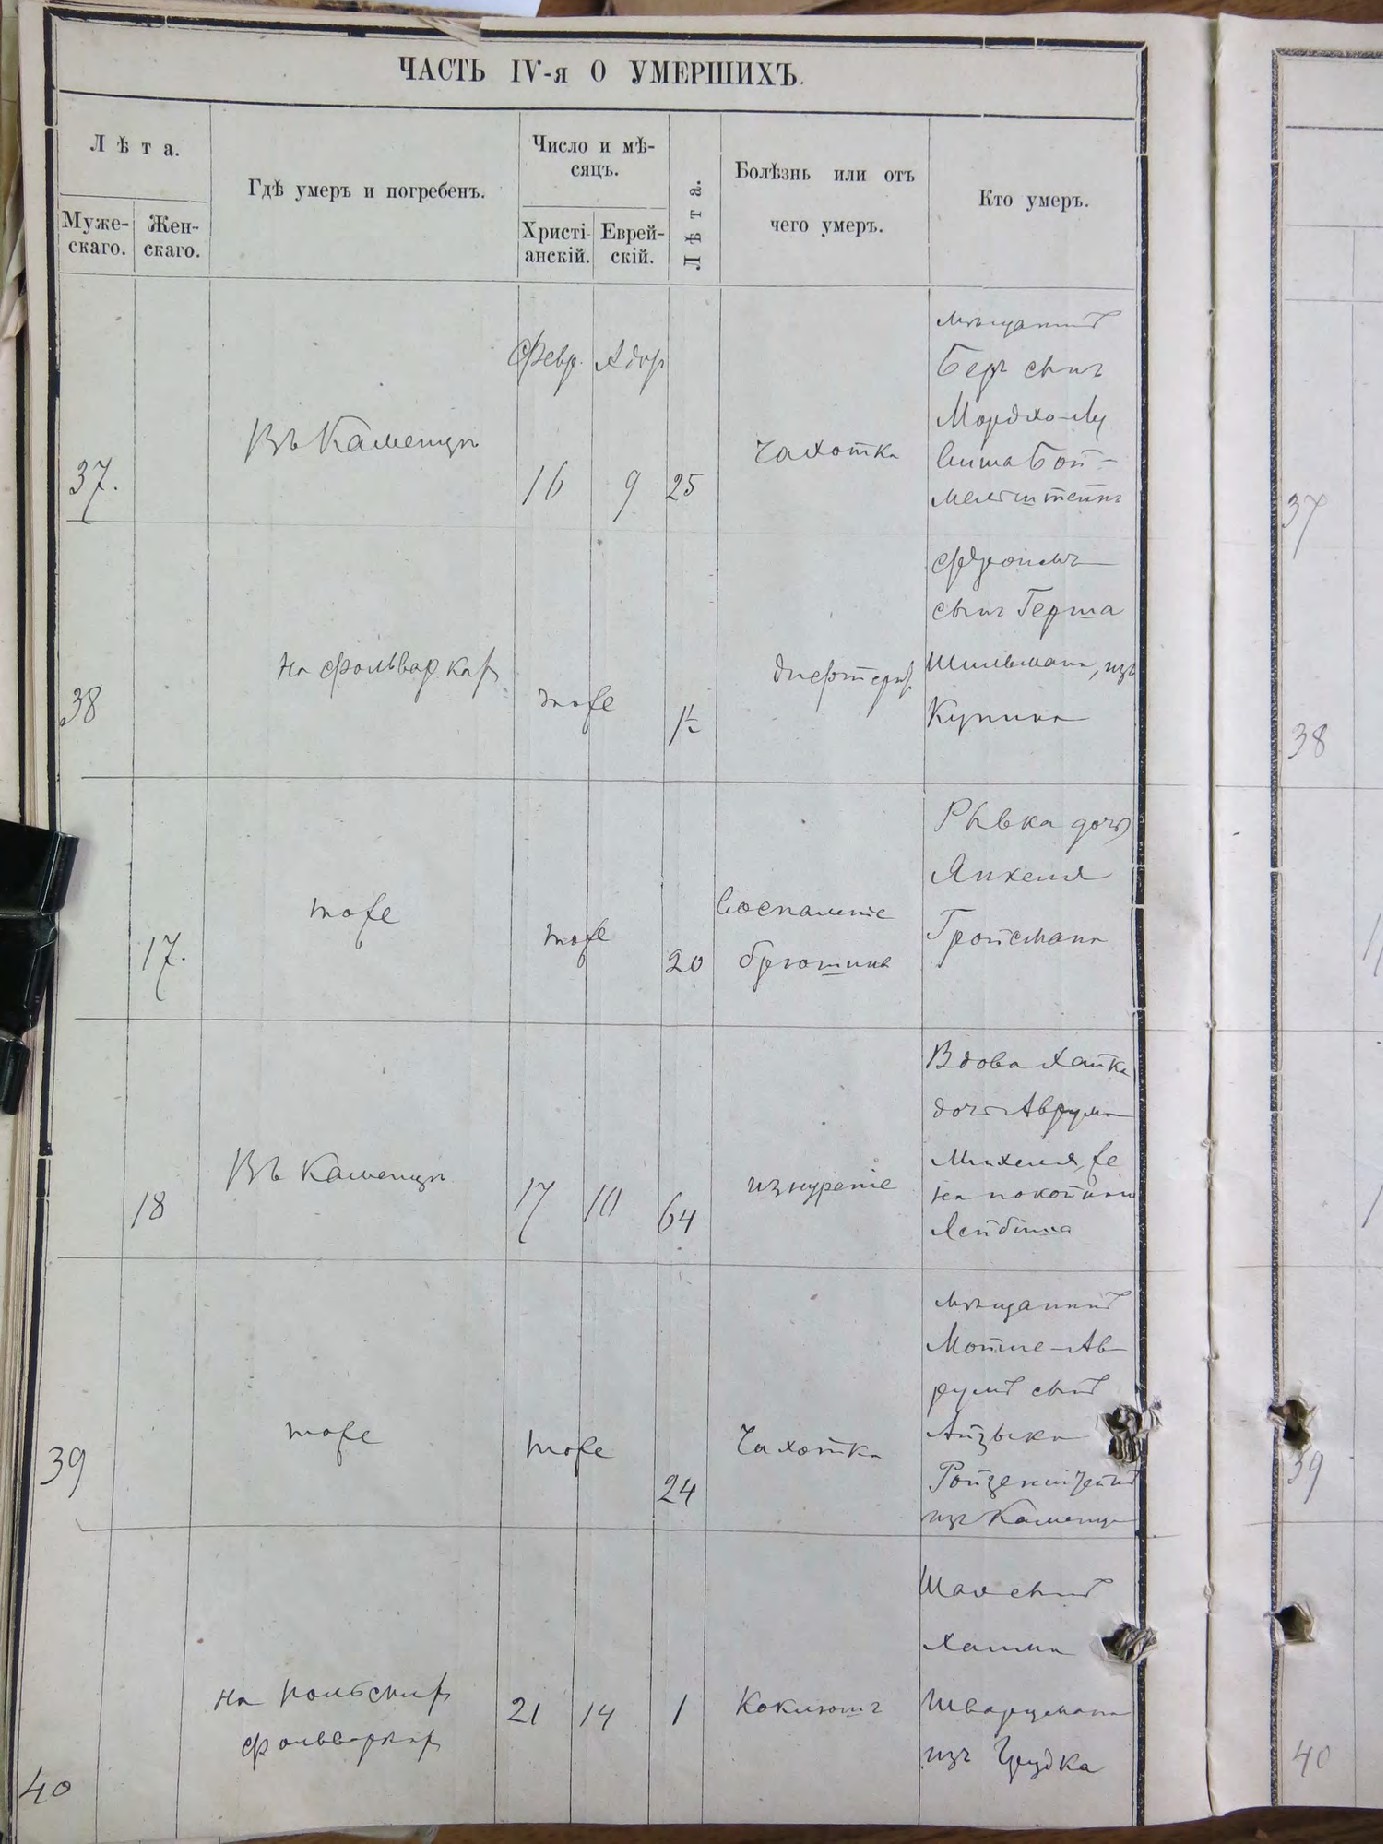 ЧАСТЬ IV-я О УМЕРШИХЪ.
Лѣта.
Муже-
скаго.
Жен-
скаго.
Гдѣ умеръ и погребенъ.
Число и мѣ-
сяцъ.
Христі-
анскій.
Еврей-
скій.
Лѣта.
Болѣзнь или отъ
чего умеръ.
Кто умеръ.
37.
Въ Каменцѣ
Февр. Адар
16 9 25
чахотка
мѣщанинъ
Беръ сынъ
Мордхо-Ле
38
на фольваркахъ
тоже
1½
дифтеритъ
Фроимъ
сынъ Герша
Шильмана, изъ
Купина
17.
тоже
тоже
20
воспаленіе
брюшины
Рывка дочь
Янкеля
Гройсмана
18
Въ Каменцѣ
17 10 64
изнуреніе
Вдова Хайка
дочь Аврума
Михеля, же
на покойнаго
Лейбиша
39
тоже
тоже
24
Чахотка
мѣщанинъ
Мотиле-Ав-
румъ сынъ
Айзыка
изъ Каменца
40
на польскихъ
фольваркахъ
21 14 1
Коклюшъ
сынъ
Хаима
Шварцмана
изъ Грудка
37
38
39
40